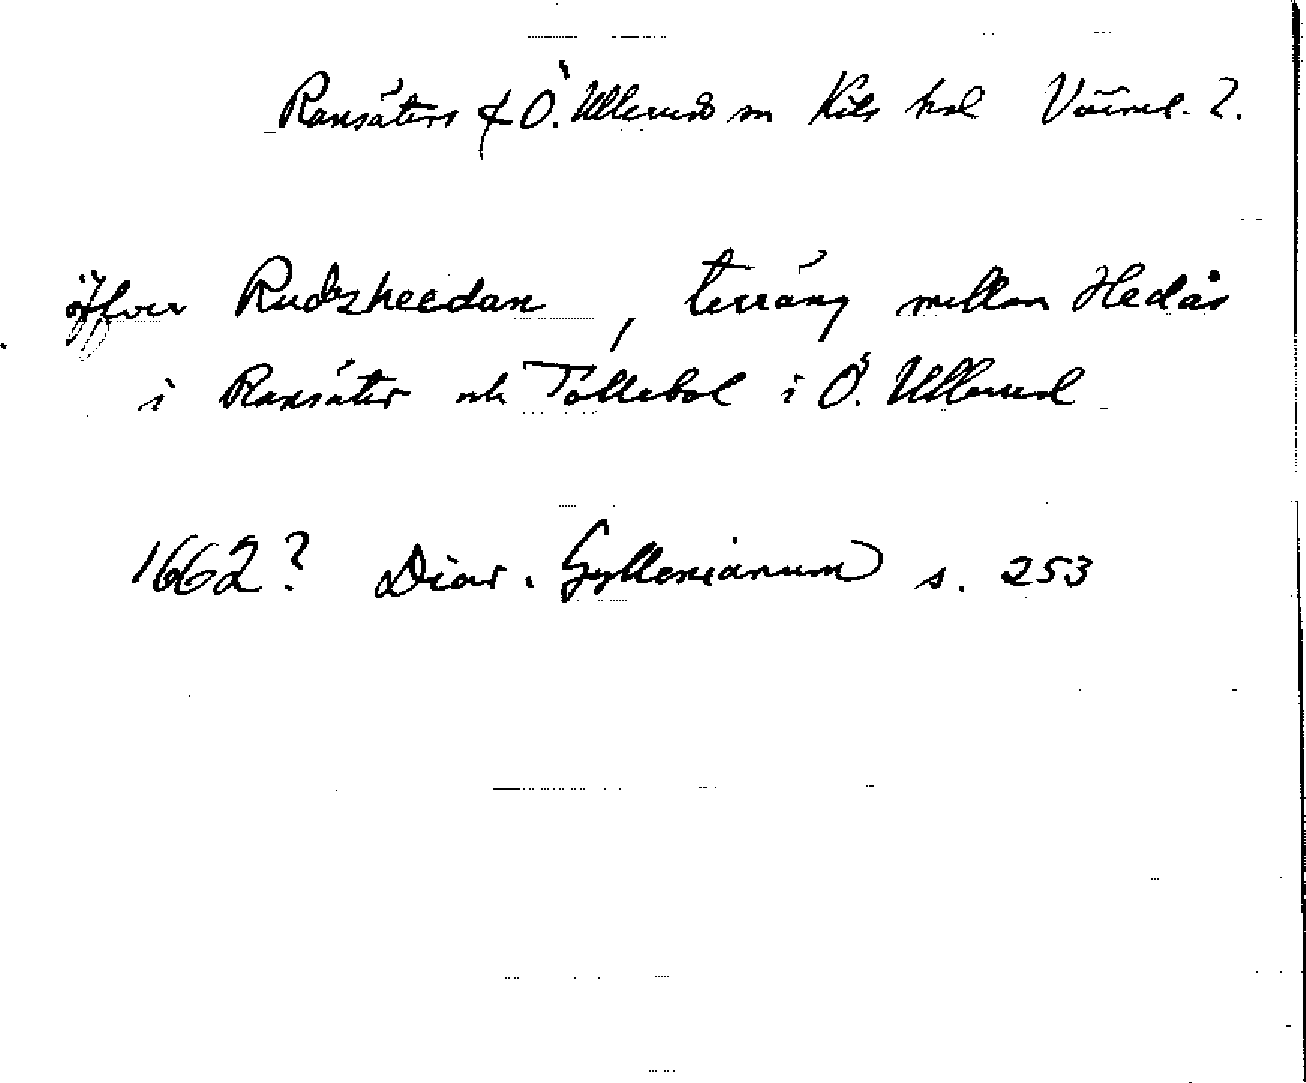 Ransäters & Ö. Ullerud sn Kils hd Värml. ?.
öffver Rudzheedan, terräng mellan Hedås
i Ransäter och Töllebol i Ö. Ullerud
1662? Diar. Gyllenianum s. 253